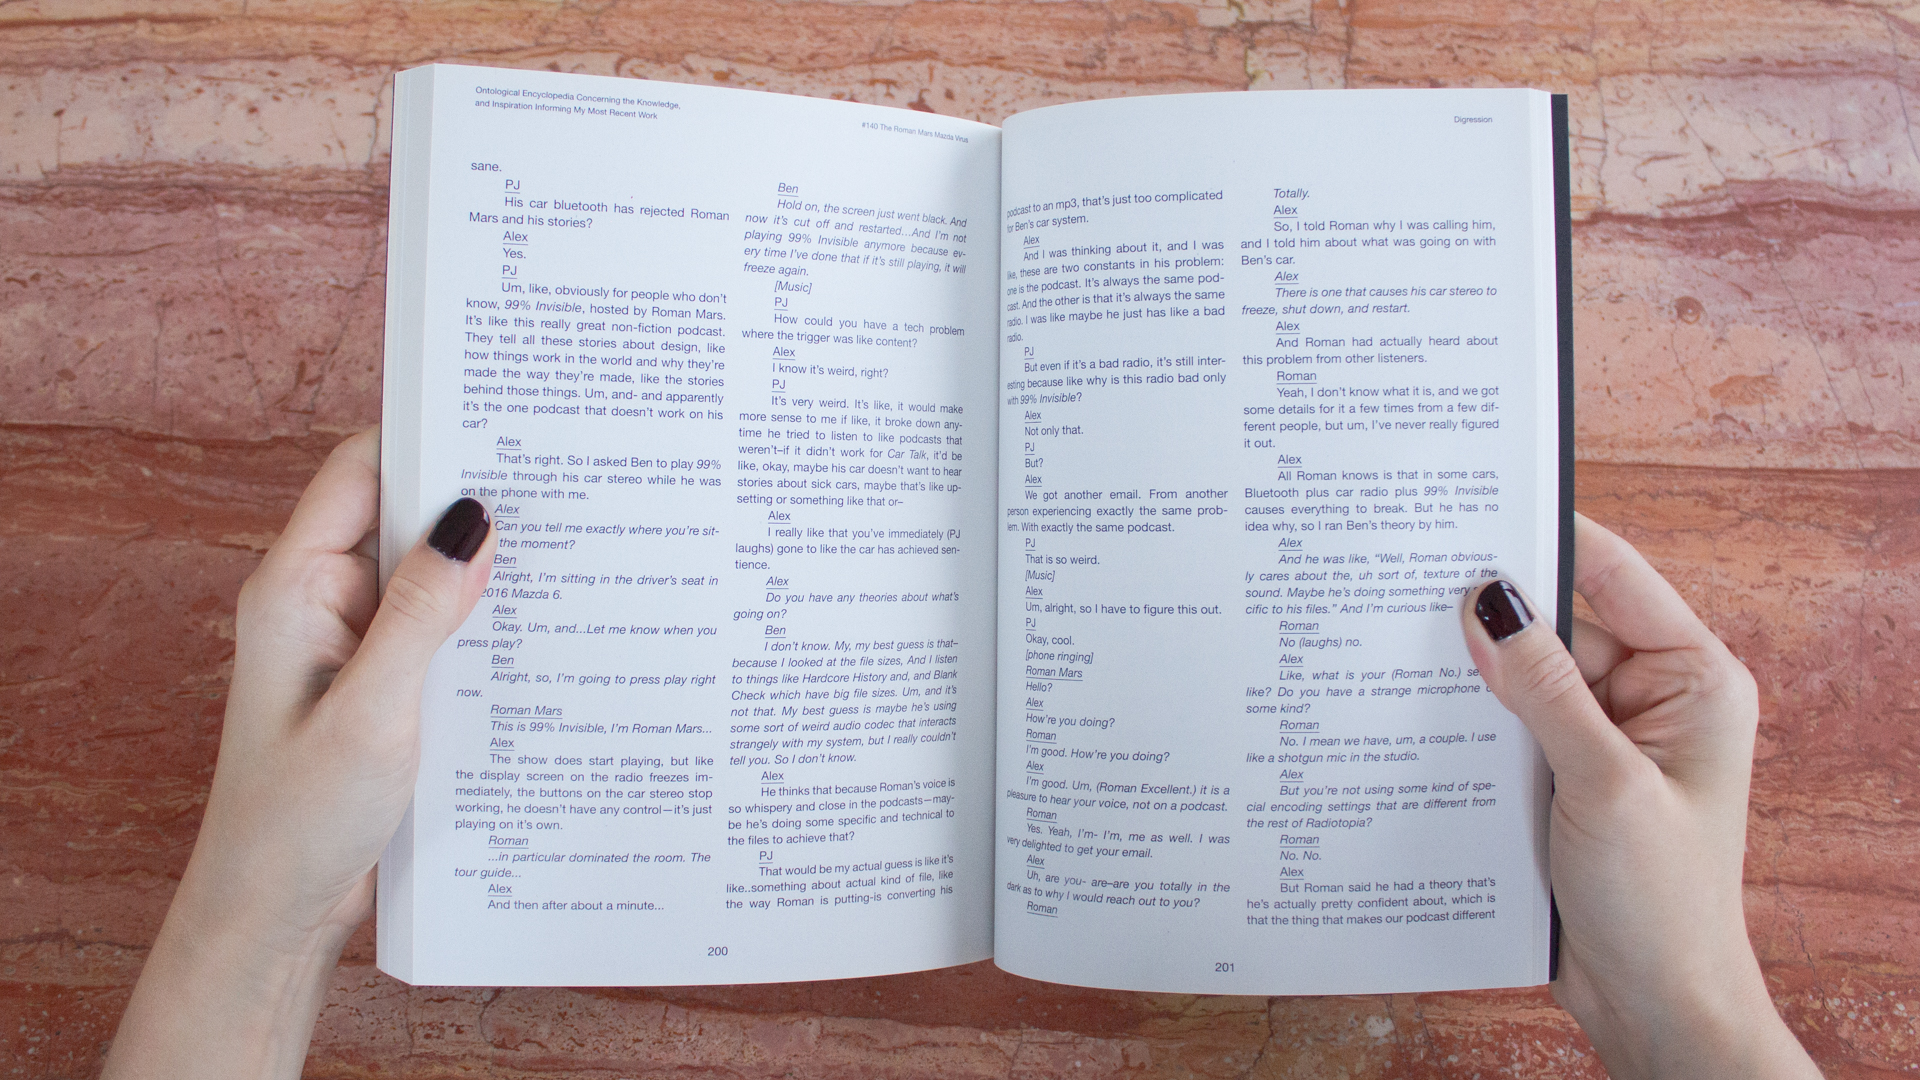 Ontological Encyclopedia Concerning the Knowledge,
and Inspiration Informing My Most Recent Work
#140 The Roman Mars Mazda Virus
sane.
PJ
His car bluetooth has rejected Roman
Mars and his stories?
Alex
Yes.
PJ
Um, like, obviously for people who don't
know, 99% Invisible, hosted by Roman Mars.
It's like this really great non-fiction podcast.
They tell all these stories about design, like
how things work in the world and why they're
made the way they're made, like the stories
behind those things. Um, and- and apparently
it's the one podcast that doesn't work on his
car?
Alex
That's right. So I asked Ben to play 99%
Invisible through his car stereo while he was
on the phone with me.
Alex
Can you tell me exactly where you're sit-
the moment?
Ben
Alright, I'm sitting in the driver's seat in
2016 Mazda 6.
Alex
Okay. Um, and...Let me know when you
press play?
Ben
Alright, so, I'm going to press play right
now.
Roman Mars
This is 99% Invisible, I'm Roman Mars...
Alex
The show does start playing, but like
the display screen on the radio freezes im-
mediately, the buttons on the car stereo stop
working, he doesn't have any control—it's just
playing on it's own.
Roman
...in particular dominated the room. The
tour guide...
Alex
And then after about a minute...
Ben
Hold on, the screen just went black. And
now it's cut off and restarted...And I'm not
playing 99% Invisible anymore because ev-
ery time I've done that if it's still playing, it will
freeze again.
[Music]
PJ
How could you have a tech problem
where the trigger was like content?
Alex
I know it's weird, right?
PJ
It's very weird. It's like, it would make
more sense to me if like, it broke down any-
time he tried to listen to like podcasts that
weren't–if it didn't work for Car Talk, it'd be
like, okay, maybe his car doesn't want to hear
stories about sick cars, maybe that's like up-
setting or something like that or–
Alex
I really like that you've immediately (PJ
laughs) gone to like the car has achieved sen-
tience.
Alex
Do you have any theories about what's
going on?
Ben
I don't know. My, my best guess is that–
because I looked at the file sizes, And I listen
to things like Hardcore History and, and Blank
Check which have big file sizes. Um, and it's
not that. My best guess is maybe he's using
some sort of weird audio codec that interacts
strangely with my system, but I really couldn't
tell you. So I don't know.
Alex
He thinks that because Roman's voice is
so whispery and close in the podcasts—may-
be he's doing some specific and technical to
the files to achieve that?
PJ
That would be my actual guess is like it's
like..something about actual kind of file, like
the way Roman is putting-is converting his
200
Digression
podcast to an mp3, that's just too complicated
for Ben's car system.
Alex
And I was thinking about it, and I was
like, these are two constants in his problem:
one is the podcast. It's always the same pod-
cast. And the other is that it's always the same
radio. I was like maybe he just has like a bad
radio.
PJ
But even if it's a bad radio, it's still inter-
esting because like why is this radio bad only
with 99% Invisible?
Alex
Not only that.
PJ
But?
Alex
We got another email. From another
person experiencing exactly the same prob-
lem. With exactly the same podcast.
PJ
That is so weird.
[Music]
Alex
Um, alright, so I have to figure this out.
PJ
Okay, cool.
[phone ringing]
Roman Mars
Hello?
Alex
How're you doing?
Roman
I'm good. How're you doing?
Alex
I'm good. Um, (Roman Excellent.) it is a
pleasure to hear your voice, not on a podcast.
Roman
Yes. Yeah, I'm- I'm, me as well. I was
very delighted to get your email.
Alex
Uh, are you- are–are you totally in the
dark as to why I would reach out to you?
Roman
Totally.
Alex
So, I told Roman why I was calling him,
and I told him about what was going on with
Ben's car.
Alex
There is one that causes his car stereo to
freeze, shut down, and restart.
Alex
And Roman had actually heard about
this problem from other listeners.
Roman
Yeah, I don't know what it is, and we got
some details for it a few times from a few dif-
ferent people, but um, I've never really figured
it out.
Alex
All Roman knows is that in some cars,
Bluetooth plus car radio plus 99% Invisible
causes everything to break. But he has no
idea why, so I ran Ben's theory by him.
Alex
And he was like, “Well, Roman obvious-
ly cares about the, uh sort of, texture of the
sound. Maybe he's doing something very
cific to his files.” And I'm curious like–
Roman
No (laughs) no.
Alex
Like, what is your (Roman No.)
like? Do you have a strange microphone
some kind?
Roman
No. I mean we have, um, a couple. I use
like a shotgun mic in the studio.
Alex
But you're not using some kind of spe-
cial encoding settings that are different from
the rest of Radiotopia?
Roman
No. No.
Alex
But Roman said he had a theory that's
he's actually pretty confident about, which is
that the thing that makes our podcast different
201